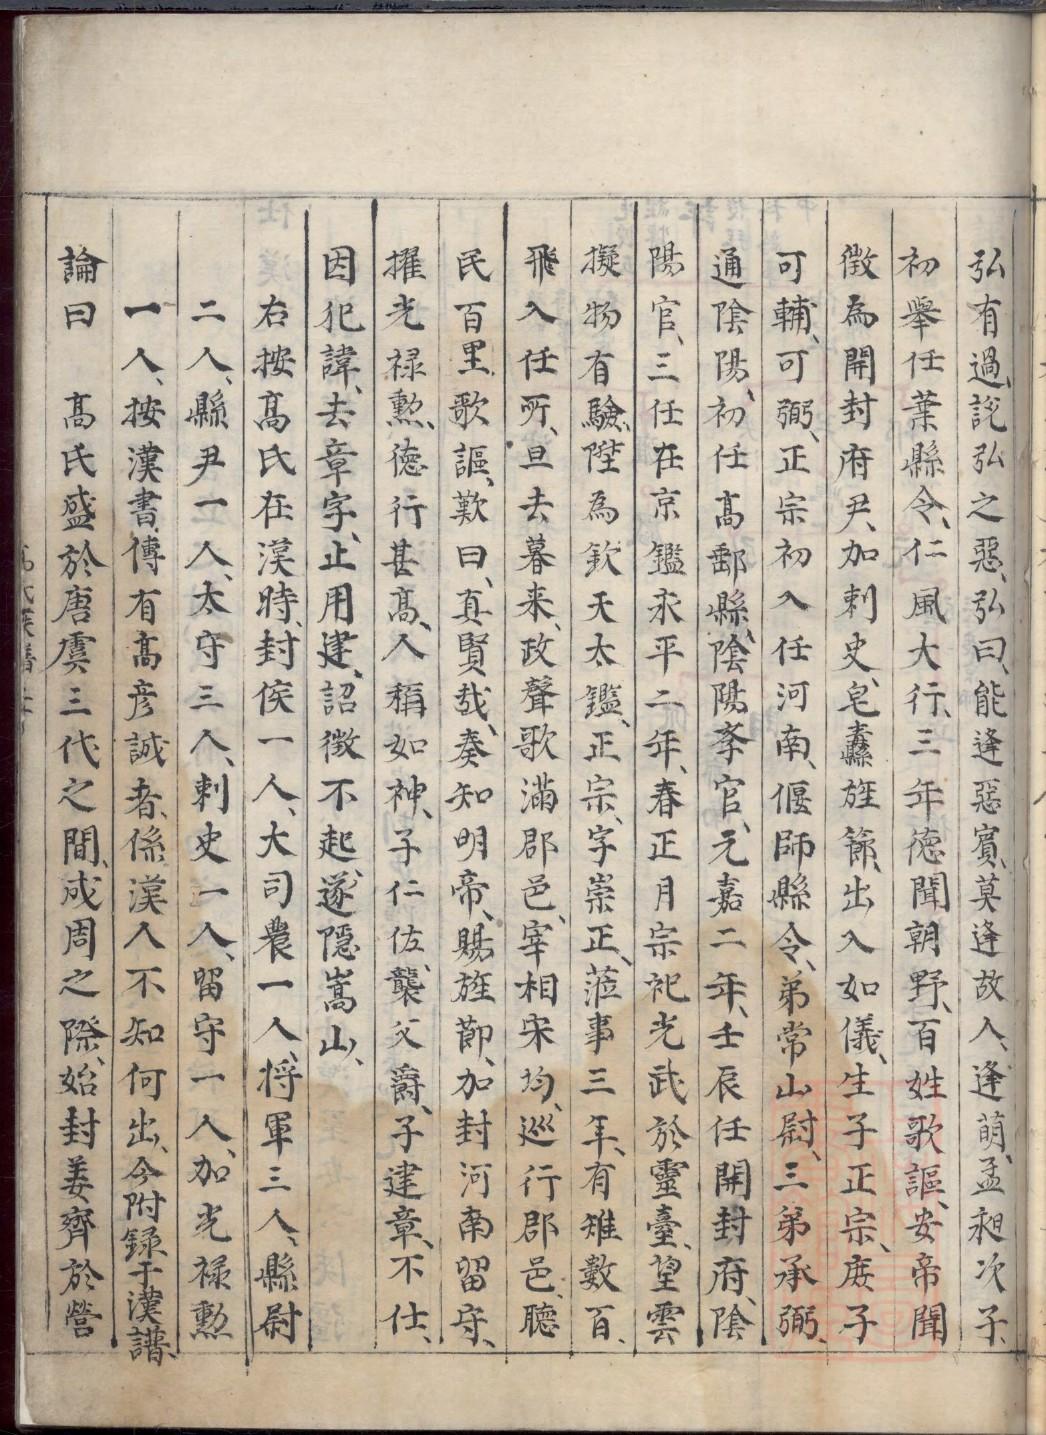 弘有過、說弘之惡、弘曰、能逢惡賓、莫逢故人、逢萌、孟昶次子、
初舉任葉縣令、仁風大行、三年德聞朝野、百姓歌謳、安帝聞
徵為開封府尹、加刺史、皂纛旌節、出入如儀、生子正宗、庶子
可輔、可弼、正宗初入任河南、偃師縣令、弟常山尉、三弟承弼、
通陰陽、初任高郵縣、陰陽孝官、元嘉二年、壬辰任開封府、陰
陽官、三任在京鑑永平二年、春正月宗祀光武於靈臺、望雲
擬物有驗、陞為欽天太鑑、正宗、字崇正、蒞事三年、有雉數百、
飛入任所、旦去暮来、政聲歌滿郡邑、宰相宋均、巡行郡邑、聽
民百里歌謳、歎曰、真賢哉、奏知明帝、賜旌節、加封河南留守、
擢光禄勲、德行甚高、人稱如神、子仁佐、襲父爵、子建章、不仕、
因犯諱、去章字、止用建、詔徵不起、遂隱嵩山、
右按高氏在漢時、封侯一人、大司農一人、将軍三人、縣尉
二人、縣尹一人、太守三人、刺史一人、留守一人、加光禄勲
一人、按漢書、傳有高彦誠者、係漢人不知何出、今附録于漢譜、
論曰　高氏盛於唐虞三代之間、成周之際、始封姜齊於營